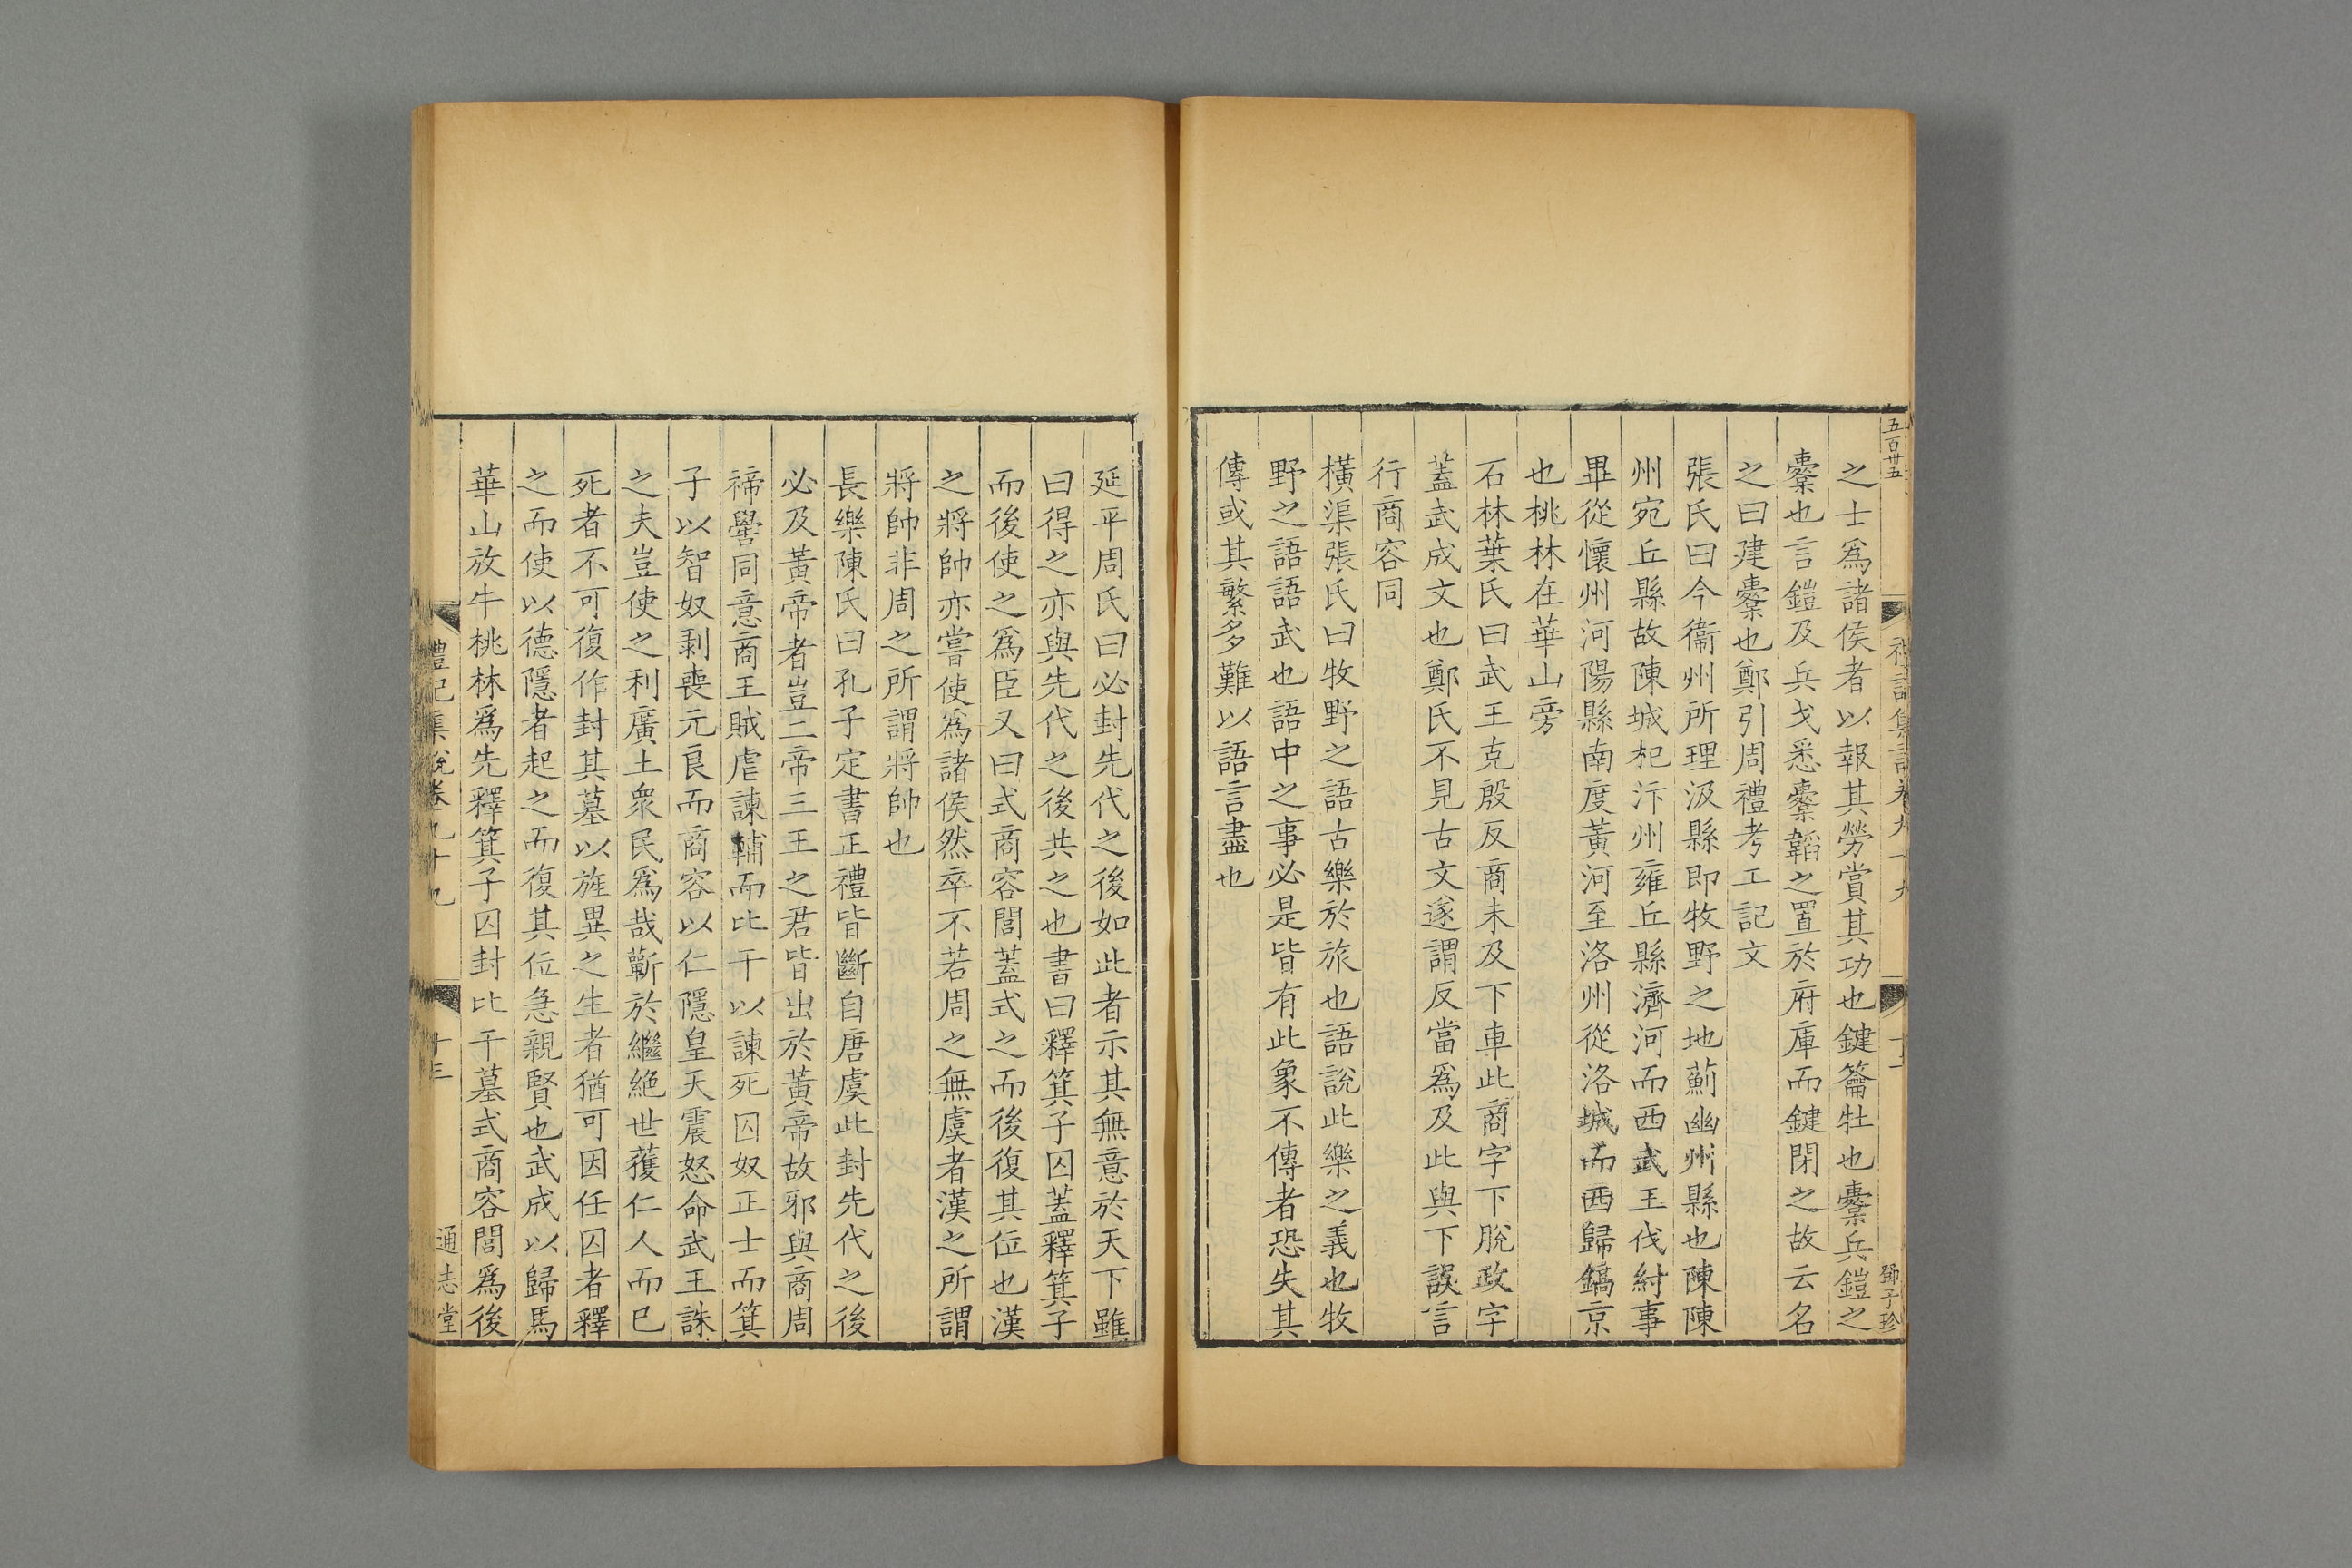 五百卅五
禮記集說卷九十九
十二
鄧子珍
之士爲諸侯者以報其勞賞其功也鍵籥牡也櫜兵鎧之
櫜也言鎧及兵戈悉櫜韜之置於府庫而鍵閉之故云名
之曰建櫜也鄭引周禮考工記文
張氏曰今衞州所理汲縣即牧野之地薊幽州縣也陳陳
州宛丘縣故陳城杞汴州雍丘縣濟河而西武王伐紂事
畢從懷州河陽縣南度黃河至洛州從洛城而西歸鎬京
也桃林在華山旁
石林葉氏曰武王克殷反商未及下車此商字下脫政字
蓋武成文也鄭氏不見古文遂謂反當爲及此與下誤言
行商容同
橫渠張氏曰牧野之語古樂於旅也語說此樂之義也牧
野之語語武也語中之事必是皆有此象不傳者恐失其
傳或其繁多難以語言盡也
延平周氏曰必封先代之後如此者示其無意於天下雖
曰得之亦與先代之後共之也書曰釋箕子囚蓋釋箕子
而後使之爲臣又曰式商容閭蓋式之而後復其位也漢
之將帥亦嘗使爲諸侯然卒不若周之無虞者漢之所謂
將帥非周之所謂將帥也
長樂陳氏曰孔子定書正禮皆斷自唐虞此封先代之後
必及黃帝者豈二帝三王之君皆出於黃帝故邪與商周
禘嚳同意商王賊虐諫輔而比干以諫死囚奴正士而箕
子以智奴剥喪元良而商容以仁隱皇天震怒命武王誅
之夫豈使之利廣土衆民爲哉蘄於繼絶世獲仁人而已
死者不可復作封其墓以旌異之生者猶可因任囚者釋
之而使以德隱者起之而復其位急親賢也武成以歸馬
華山放牛桃林爲先釋箕子囚封比干墓式商容閭爲後
禮記集說卷九十九
十三
通志堂